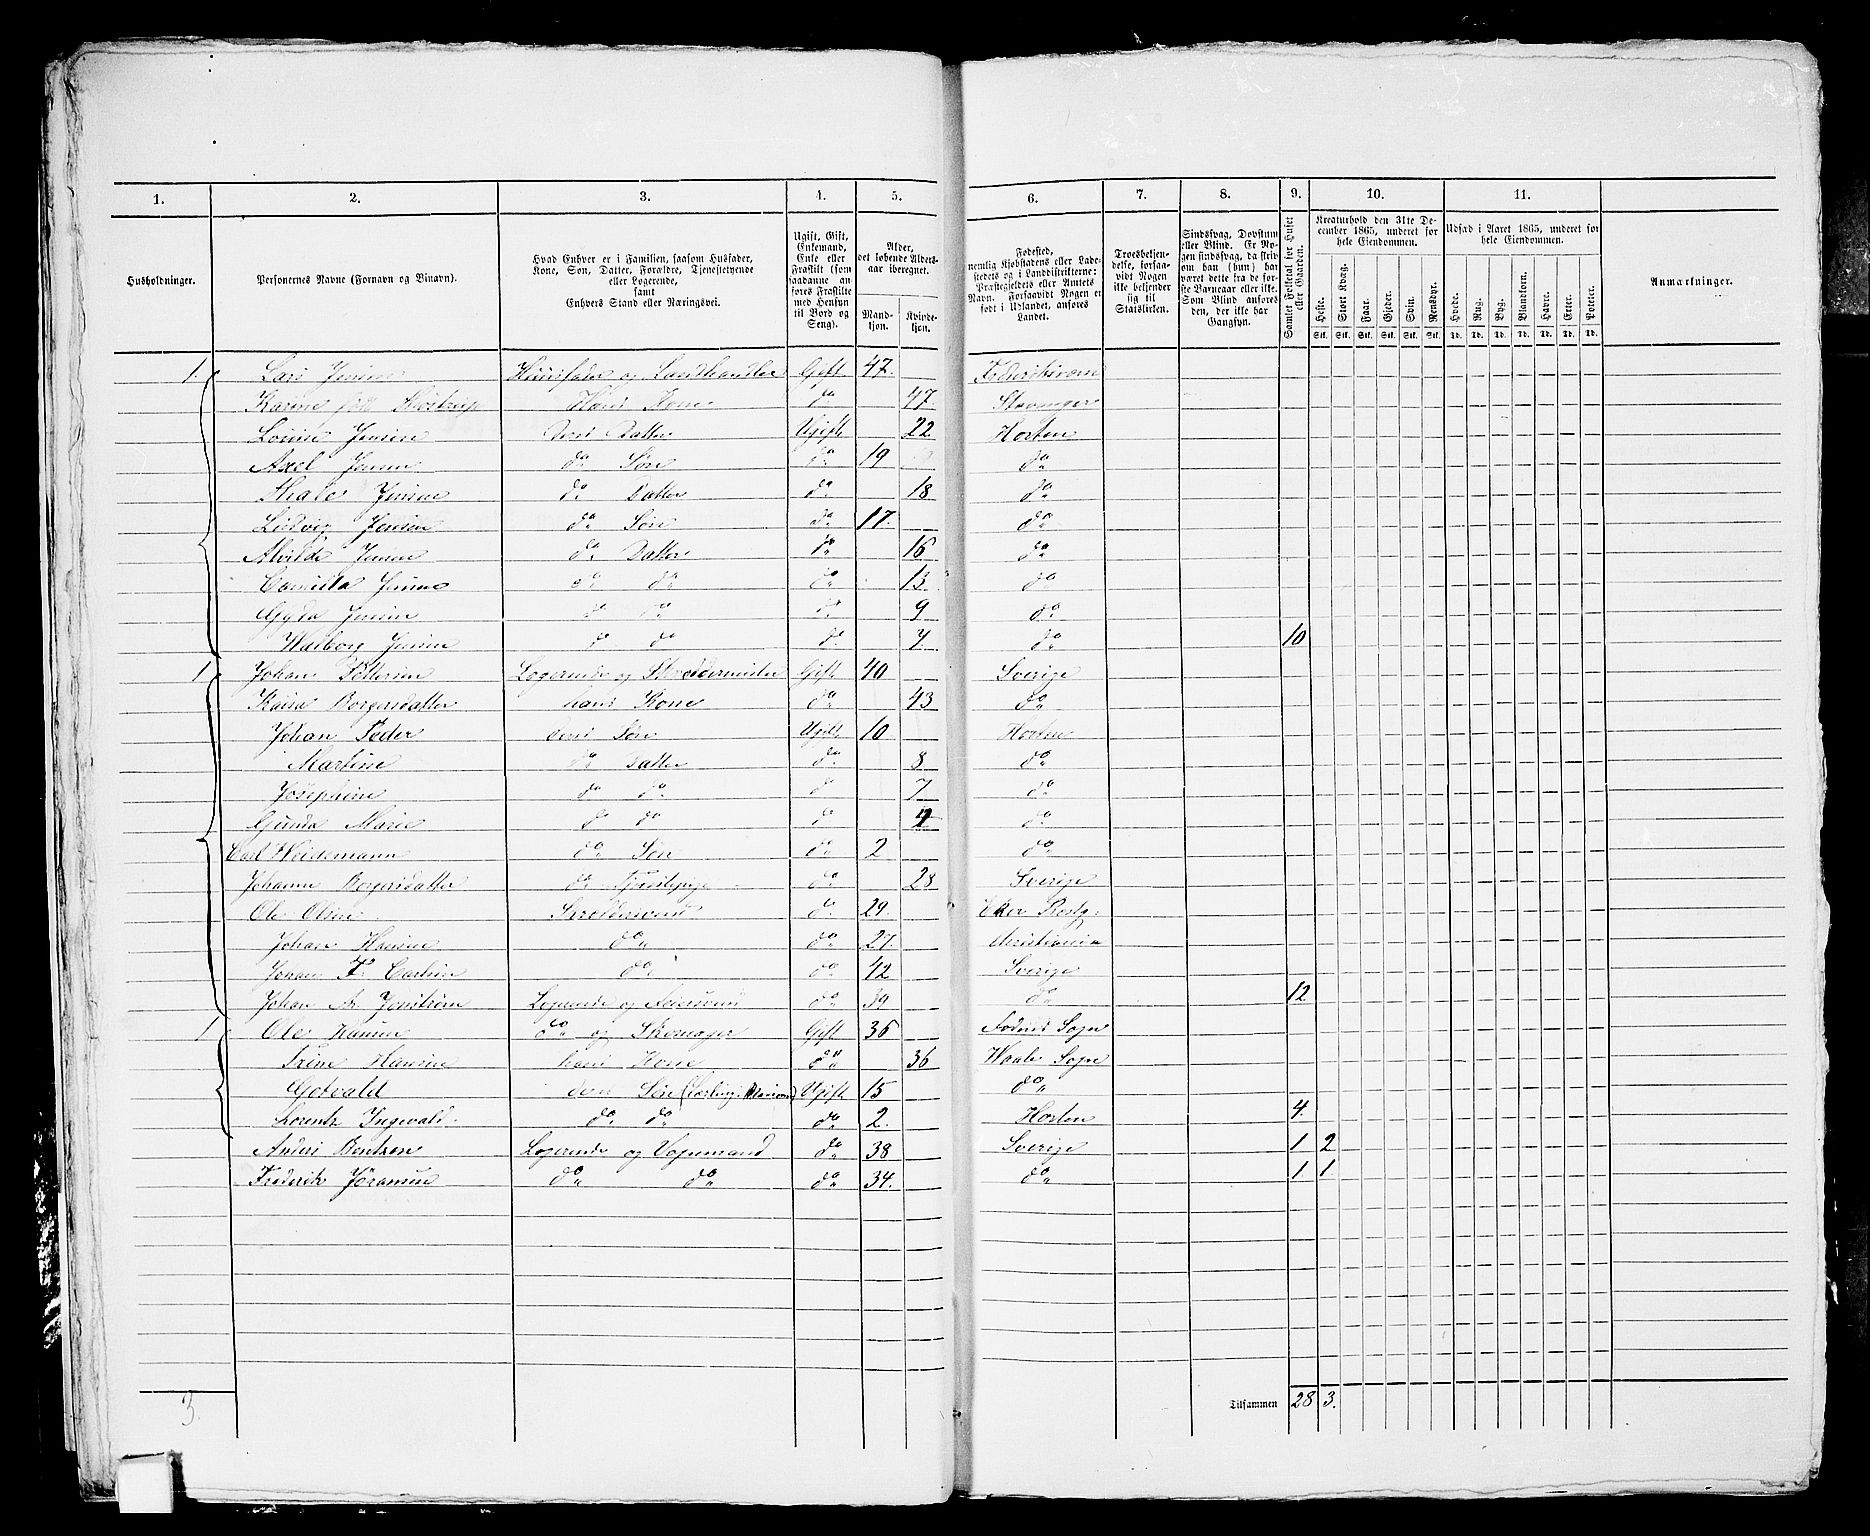 1. 2. 3. 4. 5. 6. 7. 8. 9. 10. 11.
Husholdninger.
Personernes Navne (Fornavn og Binavn).
Hvad Enhver er i Familien, saasom Husfader,
Kone, Søn, Datter, Forældre, Tjenestetyende
eller Logerende,
samt
Enhvers Stand eller Næringsvei.
Ugift, Gift,
Enkemand,
Enke eller
Fraskilt (som
saadanne an-
føres Fraskilte
med Hensyn
til Bord og
Seng).
Alder,
det løbende Alders-
aar iberegnet.
Mand-
kjøn.
Kvinde-
kjøn.
Fødested,
nemlig Kjøbstadens eller Lade-
stedets og i Landdistrikterne:
Præstegjeldets eller Amtets
Navn. Forsaavidt Nogen er
født i Udlandet, anføres
Landet.
Troesbekjen-
delse, forsaa-
vidt Nogen
ikke bekjender
sig til
Statskirken.
Sindssvag, Døvstum
eller Blind. Er No-
gen sindssvag, da skriv
om han (hun) har
været dette fra de før-
ste Barneaar eller ikke.
Som Blind anføres
den, der ikke har
Gangsyn.
Samlet Folketal for Huset
eller Gaarden.
Kreaturhold den 31te De-
cember 1865, underet for
hele Eiendommen.
Heste. Stort Kvæg. Faar. Gjeder. Svin. Rensdyr.
Stk. Stk. Stk. Stk. Stk. Stk.
Udsæd i Aaret 1865, underet for
hele Eiendommen.
Hvede. Rug. Byg. Blandkorn. Havre. Erter. Poteter.
Td. Td. Td. Td. Td. Td. Td.
Anmærkninger.
1. Lars Jensen Huusfader og Landhandler Gift 47. Frederiksværn
Karine Hans Kone do 47 Stavanger
Louise Jensen Deres Datter Ugift 22 Horten
Axel Jensen do Søn do 19 do
Thale Jensen do Datter do 18 do
Ludvig Jensen do Søn do 17. do
Alvilde Jensen do Datter do 16 do
Camilla Jensen do do do 13 do
Gyda Jensen do do do 9 do
Walborg Jensen do do do 7. do 10
1 Johan Pettersen Logerende og Skreddermester Gift 40 Sverige
Kaisa Borgersdatter hans Kone do 43 do
Johan Peder deres Søn Ugift 10 Horten
Martine do Datter do 8 do
Josephine do do do 7 do
Gunda Marie do do do 4 do
Carl Weidemann do Søn do 2 do
Johanne Borgersdatter do Tjenestepige do 28 Sverige
Ole Olsen Skreddersvend do 29. Eker Præstg:
Johan Hansen do do 27. Christiania
Johan F. Carlsen do do 42 Sverige
Johan Ar. Jonstrøm Logerende og do 39 do 12
1 Ole Hansen do og Skomager Gift 36 Sogn
Trine Hansen hans Kone do 36 Waale Sogn
Gotvald deres Søn Ugift 15 do
Lorentz Ingevald. do do do 2. Horten 4.
Anders Bentsen Logerende og Vognmand do 38 Sverige 1 2
Frederik Jøransen do do do 34. do 1. 1.
3.
Tilsammen 28 3.